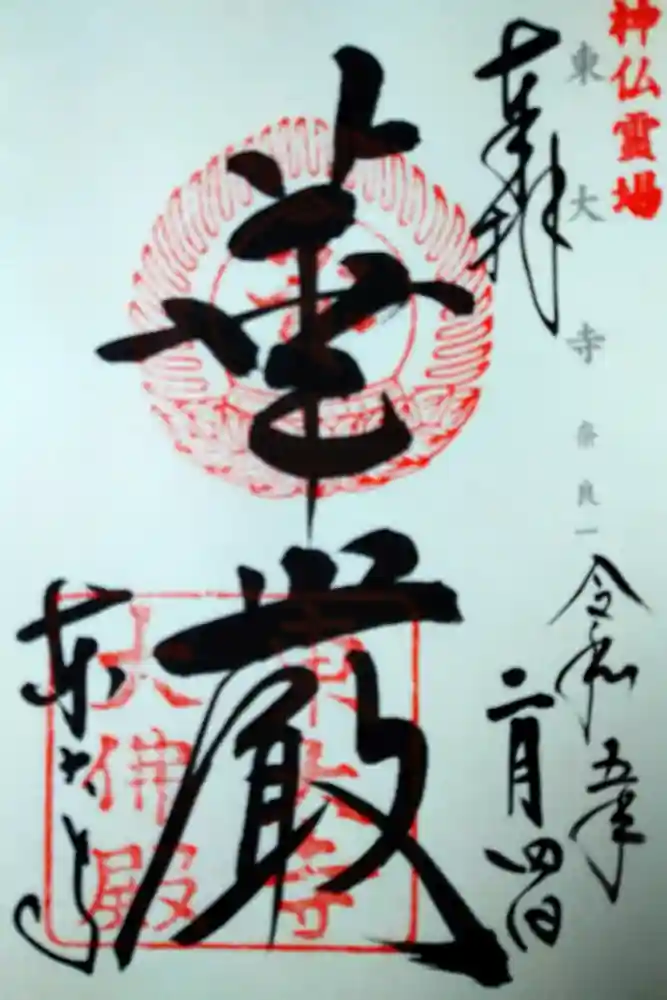 神仏霊場
東大寺 奈良一
奉拝
令和五年
二月四日
華厳
東大寺
大佛殿
東大寺